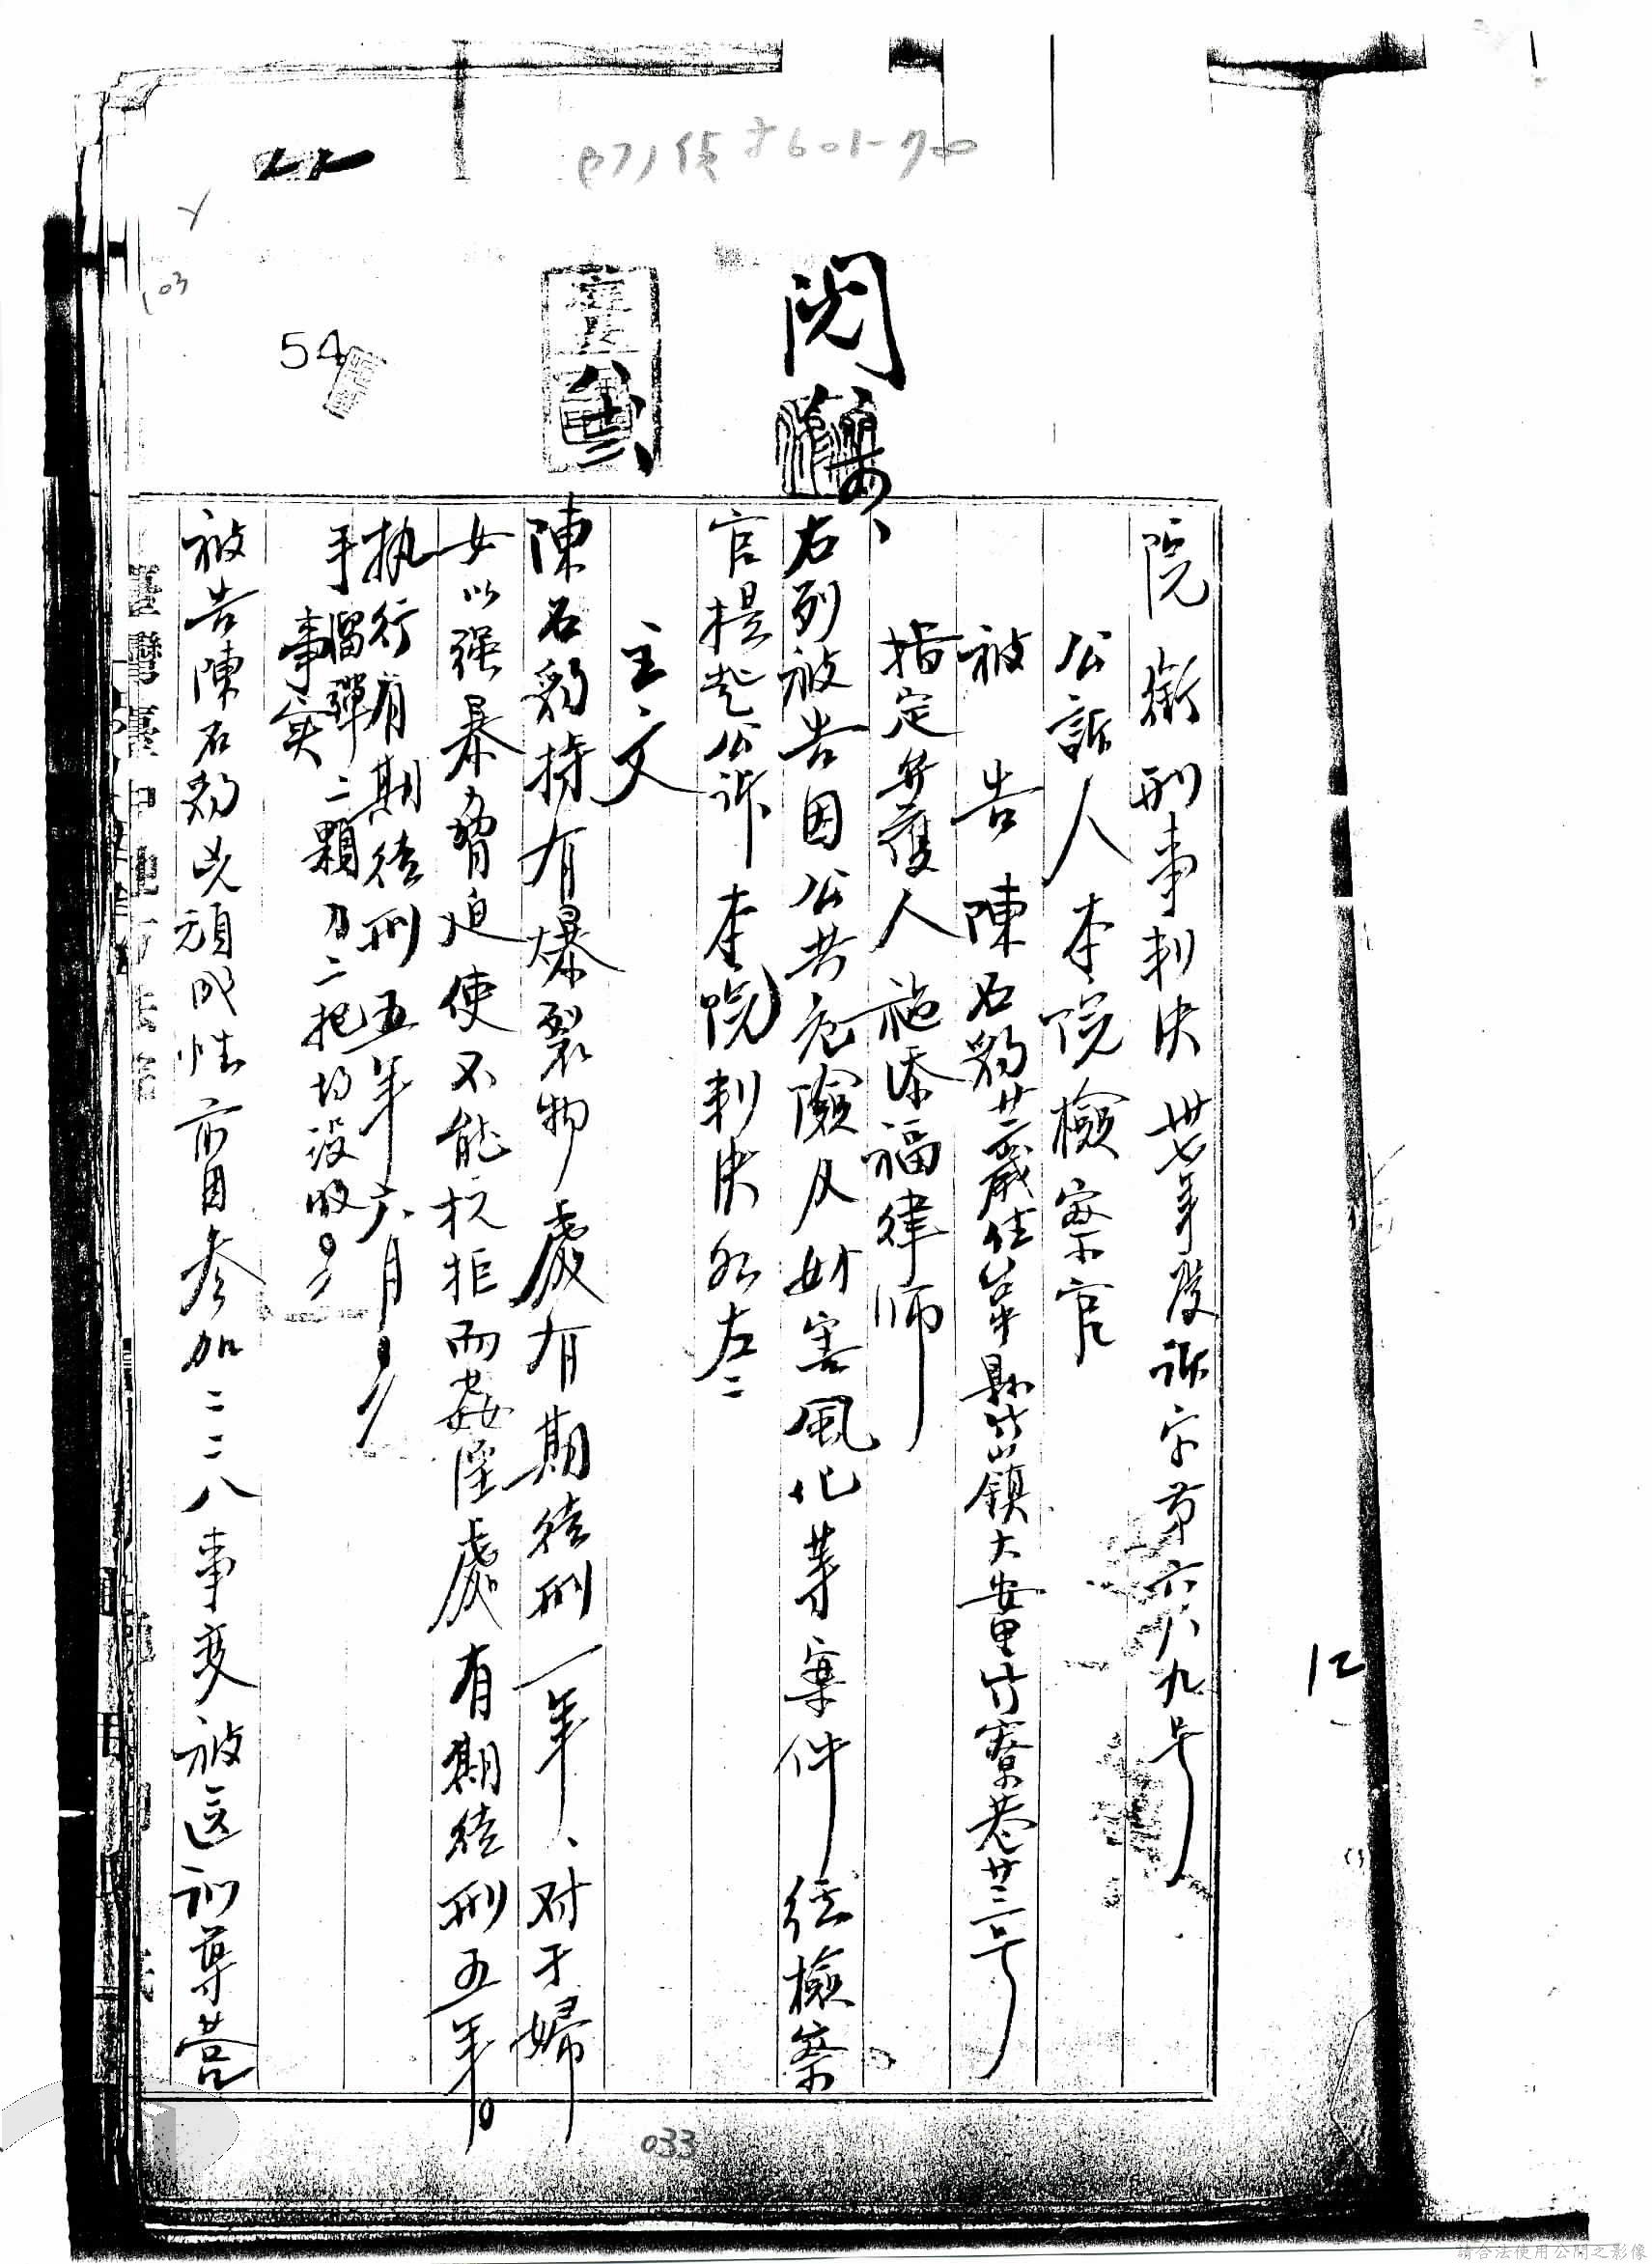 院銜刑事判決 卅七年度訴字第六八九号
公訴人 本院檢察官
被告 陳石豹 廿二歲住台中縣竹山鎮大安里竹寮巷廿三号
指定弁護人 施添福律师
右列被告因公共危險及妨害風化等案件経檢察
官提起公訴本院判決如左：
主文
陳石豹持有爆裂物處有期徒刑一年、対于婦
女以强暴脅迫使不能抗拒而姦淫處有期徒刑五年。
执行有期徒刑五年六月。
手榴彈二顆刀二把均没收。
事实
被告陳石豹兇頑成性前因参加二二八事变被送訓導营
閱
54
103
12
033
請合法使用公開之影像